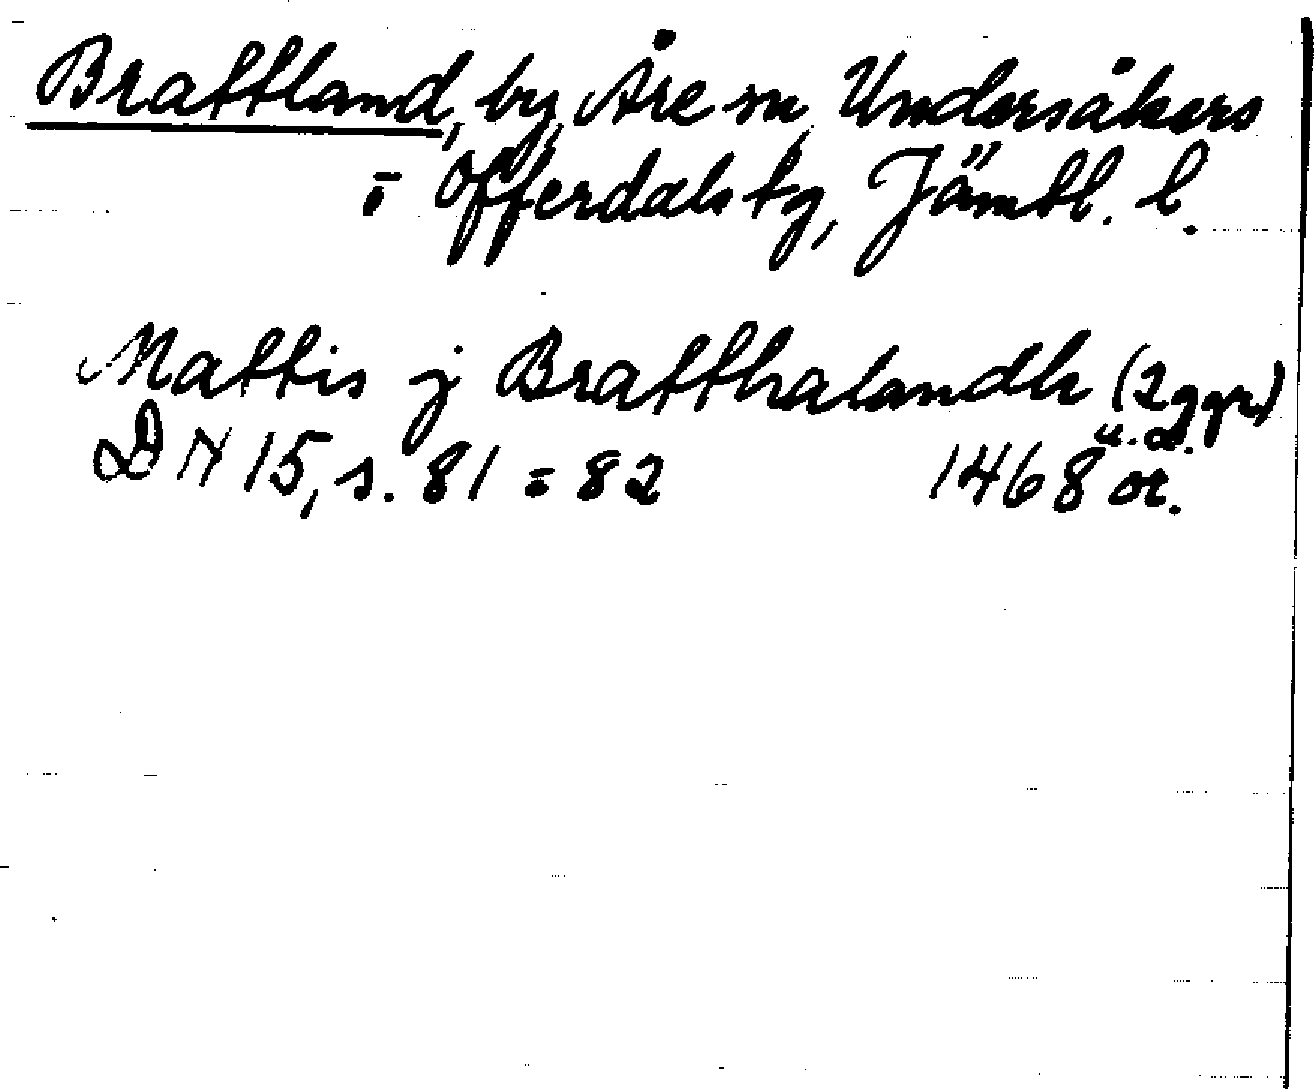 Brattland, by, Åre sn, Undersåkers
o Offerdals tg, Jämtl. l.
Mattis j Bratthalandh (2 ggr)
u. d.
DN 15, s. 81-82 1468 or.